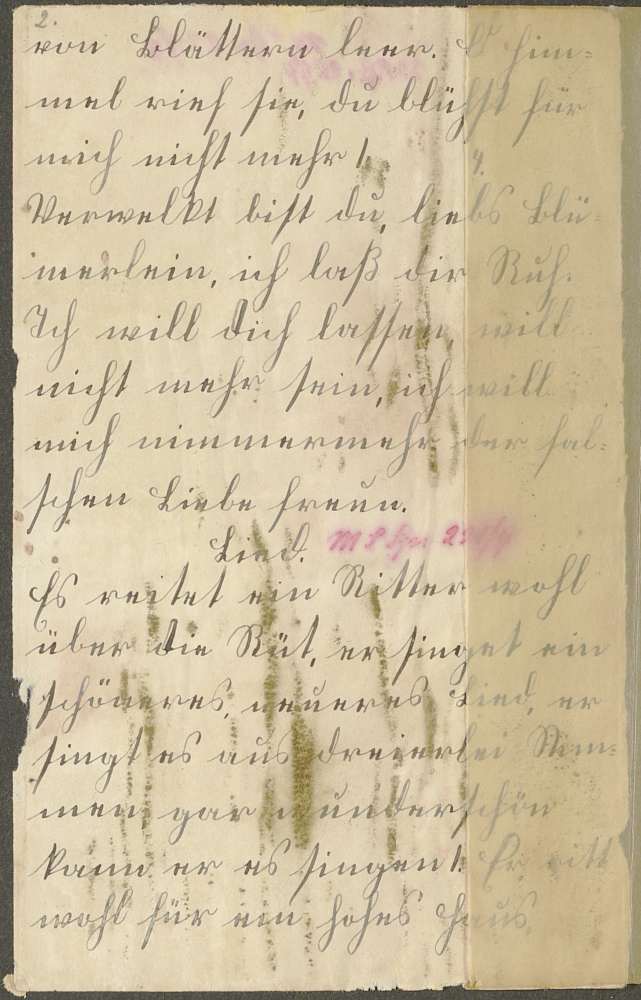 2.
von Blättern leer. O Him-
mel rief sie, du blühst für
mich nicht mehr!
4.
Verwelkt bist du, liebs Blü-
merlein, ich laß dir Ruh.
Ich will dich lassen, will
nicht mehr sein, ich will
mich nimmermehr der fal-
schen Liebe freun.
Lied.
Es reitet ein Ritter wohl
über die Rüt, er singet ein
schöneres, neueres Lied, er
singt es aus dreierlei Stim-
men gar wunderschön
kann er es singen! Er ritt
wohl für ein hohes Haus